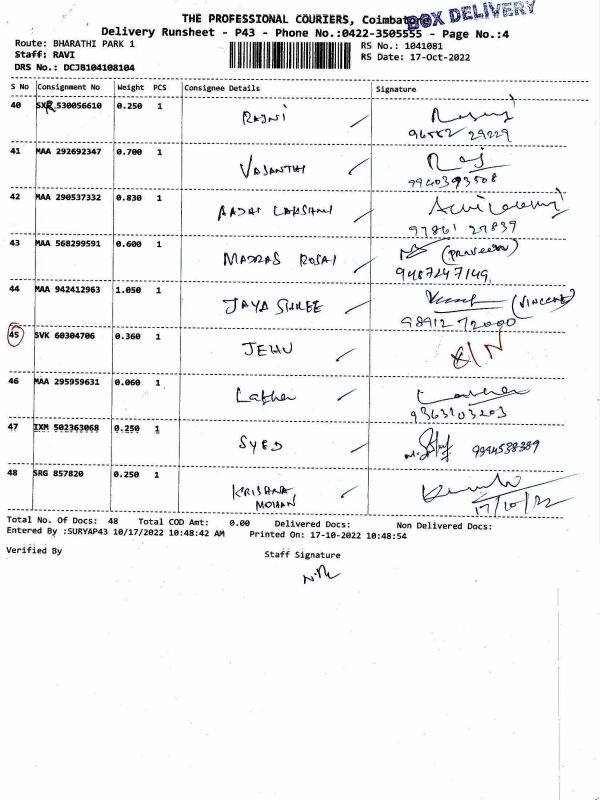 THE PROFESSIONAL COURIERS, Coimbatore
BOX DELIVERY
Delivery Runsheet - P43 - Phone No.:0422-3505555 - Page No.:4
Route: BHARATHI PARK 1
RS No.: 1041081
Staff: RAVI
RS Date: 17-Oct-2022
DRS No.: DCJB104108104
S No Consignment No Weight PCS Consignee Details Signature
40 SXR 530056610 0.250 1 RAJNI
96552 29229
41 MAA 292692347 0.700 1 VASANTHI Raj
9940393508
42 MAA 290537332 0.830 1 LAKSHMI
97861 27839
43 MAA 568299591 0.600 1 MADRAS ROSAI (PRAVEEN)
9487247149
44 MAA 942412963 1.050 1 JAYA SHREE (VINCENT)
98912 72000
45 SVK 60304706 0.360 1 JEHU
46 MAA 295959631 0.060 1 Lakher
9363103203
47 IXM 502363068 0.250 1 SYED 9994538389
48 SRG 857820 0.250 1 KRISHNA
MOHAN
17/10/22
Total No. Of Docs: 48 Total COD Amt: 0.00 Delivered Docs: Non Delivered Docs:
Entered By :SURYAP43 10/17/2022 10:48:42 AM Printed On: 17-10-2022 10:48:54
Verified By Staff Signature